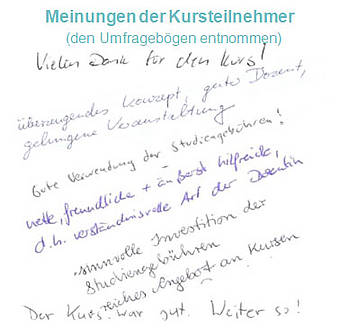 Meinungen der Kursteilnehmer
(den Umfragebögen entnommen)
Vielen Dank für den Kurs!
überzeugendes Konzept, guter Dozent,
gelungene Veranstaltung
Gute Verwendung der Studiengebühren!
nette, freundliche + äußerst hilfreiche,
d.h. verständnisvolle Art der Dozentin
sinnvolle Investition der
Studiengebühren
reiches Angebot an Kursen
Der Kurs war gut. Weiter so!